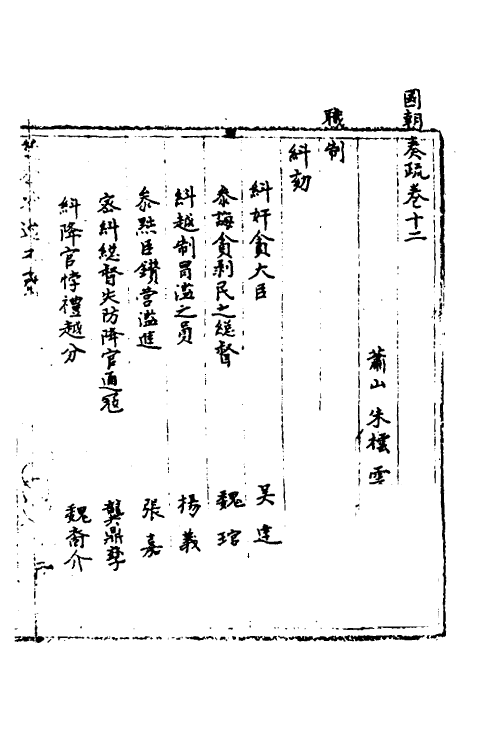 國朝奏疏卷十二
蕭山 朱橒 雲
職制
糾劾
糾奸貪大臣 吴達
叅誨貪剥民之總督 魏琯
糾越制冒濫之員 楊義
叅黜臣鑽营濫進 張嘉
密糾總督失防降官通冦 龔鼎孳
糾降官悖禮越分 魏裔介